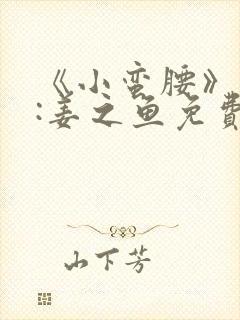 《小蛮腰》
:姜之鱼免費
山下芳